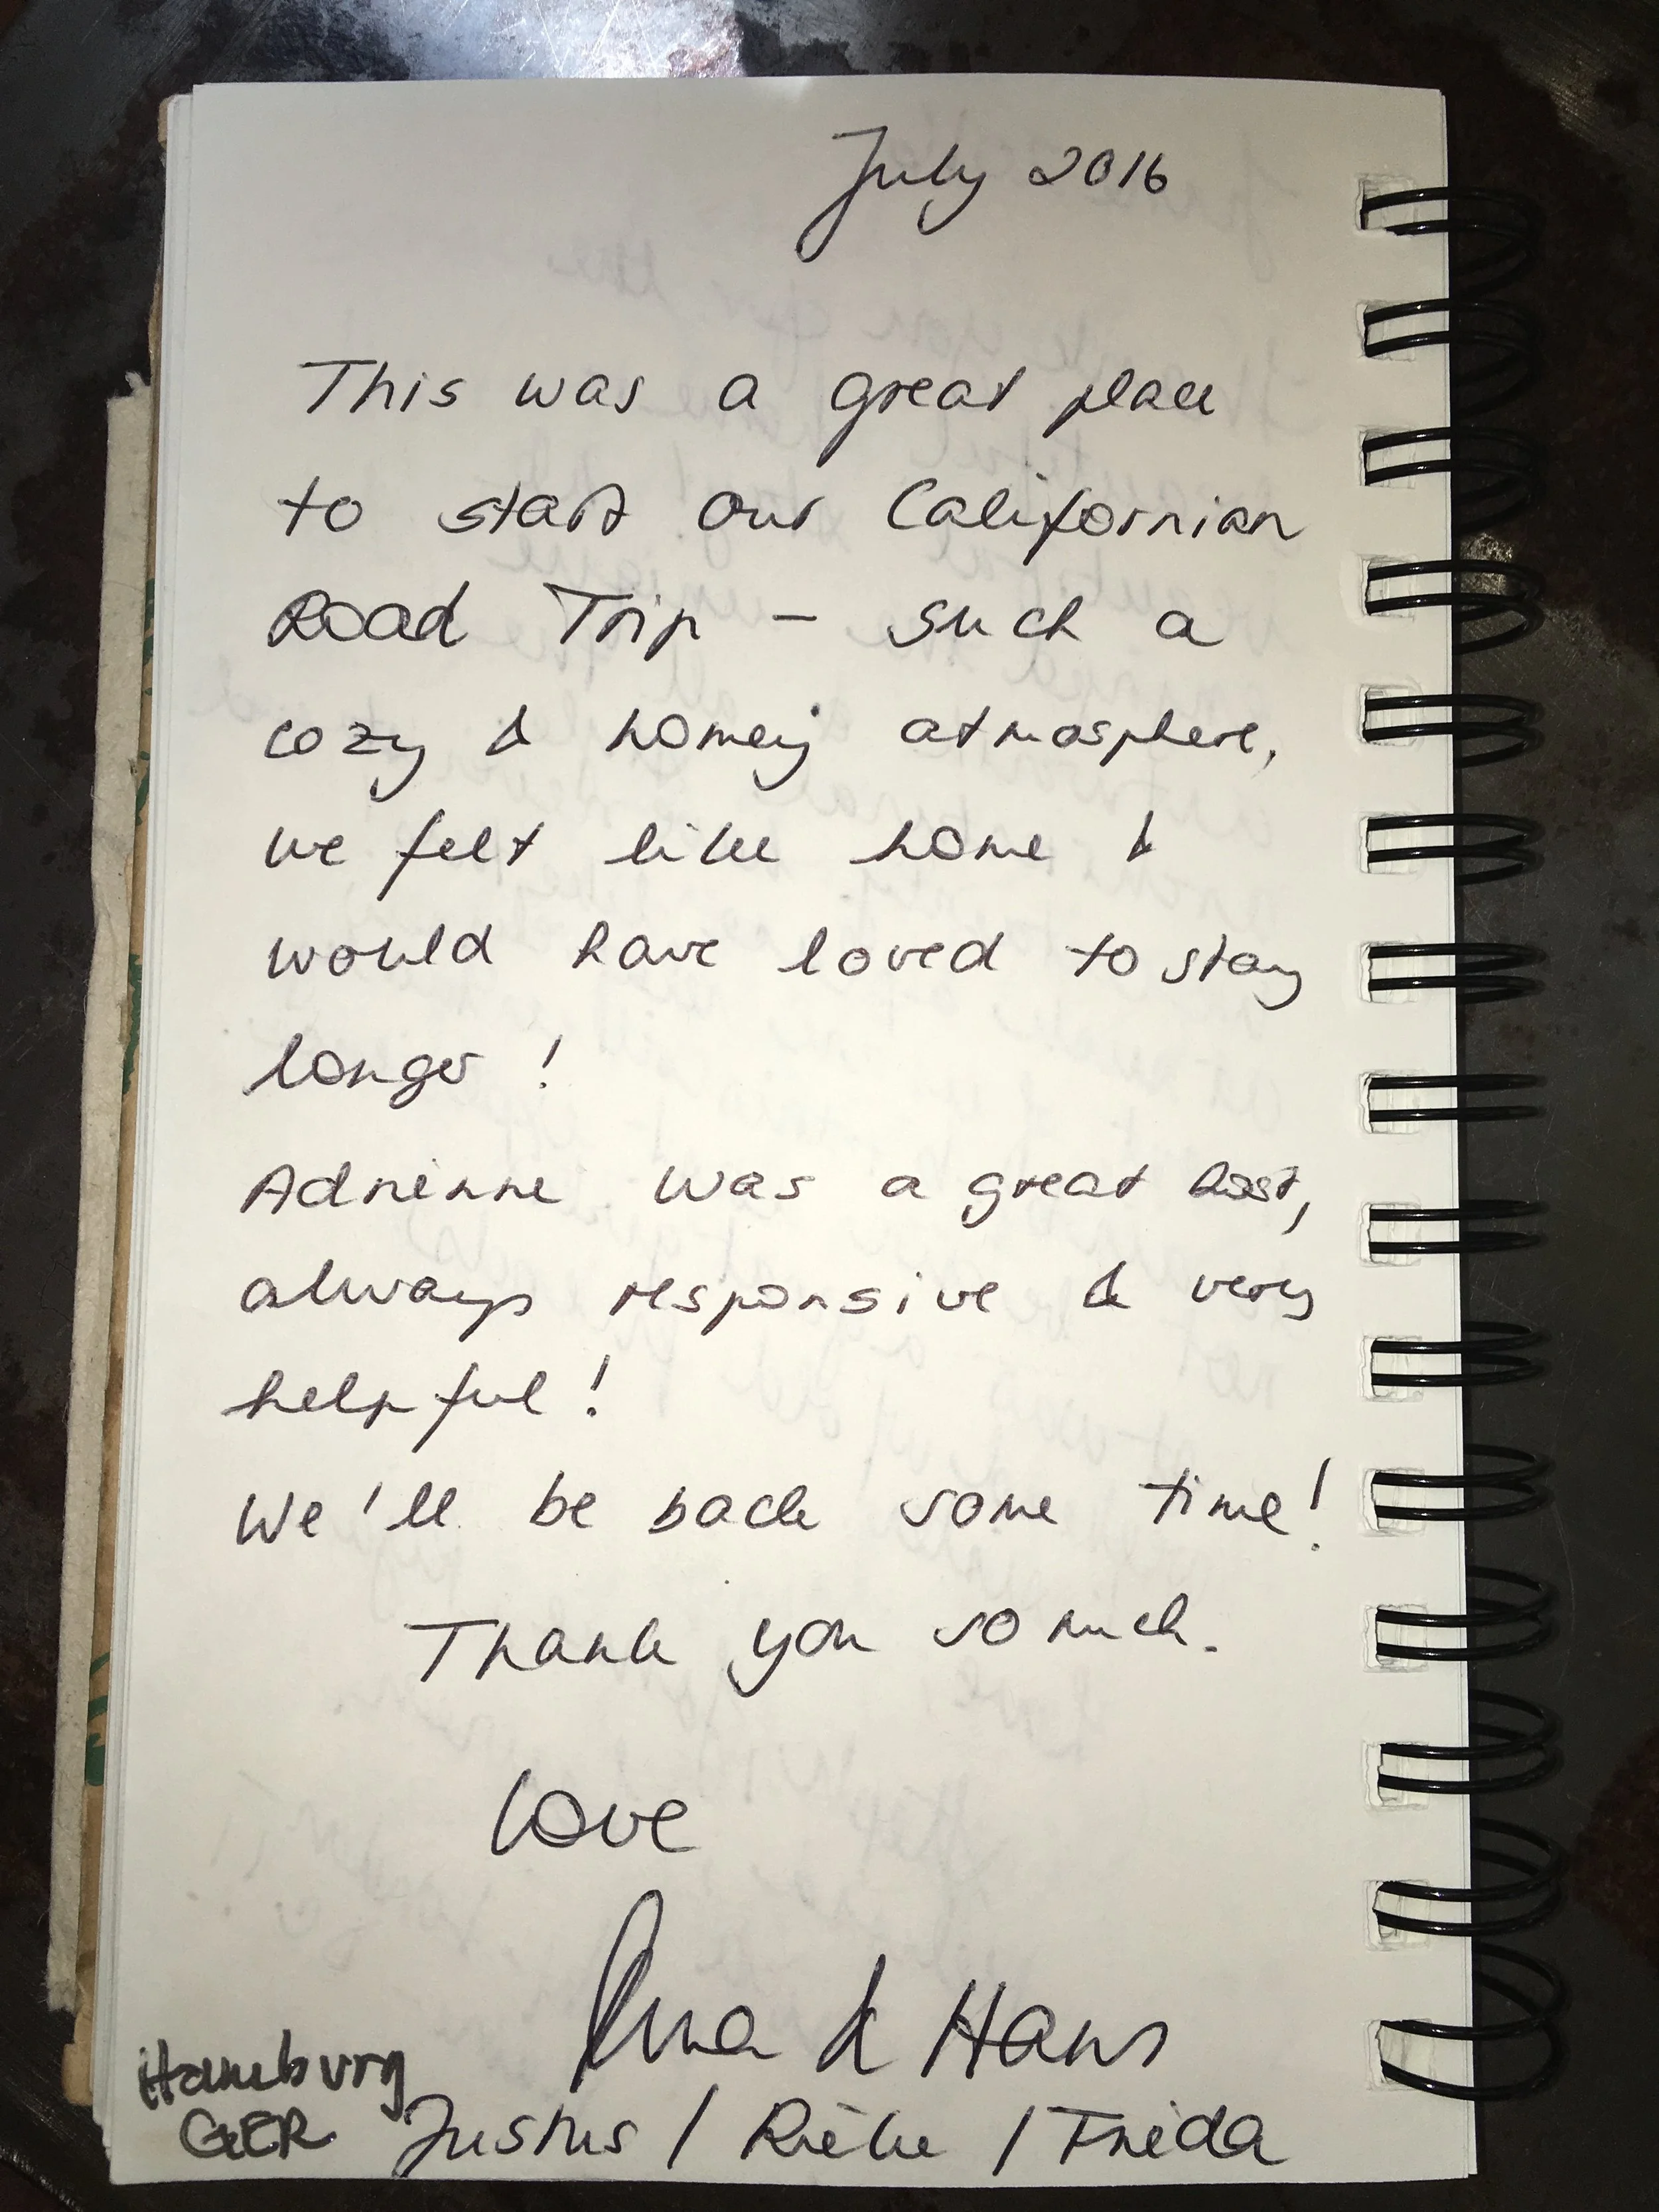 July 2016
This was a great place
to start our Californian
Road Trip – such a
cozy & homey atmosphere,
we felt like home &
would have loved to stay
longer!
Adrienne was a great host,
always responsive & very
helpful!
We'll be back some time!
Thank you so much.
Love
& Hans
Hamburg
GER
Justus / Rieke / Frieda